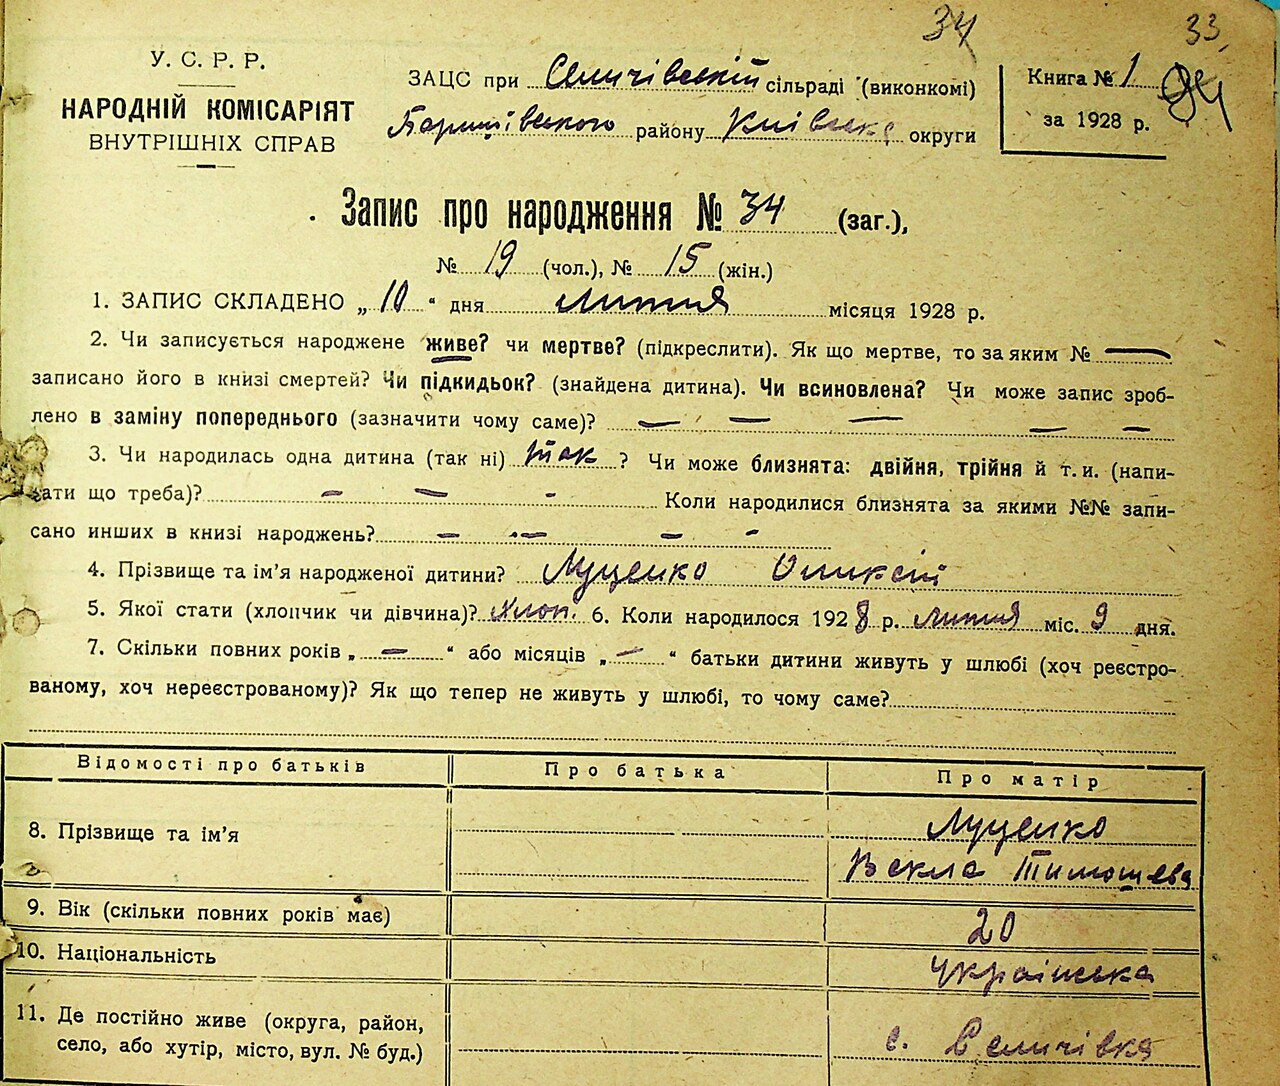 34 33,
У. С. Р. Р.
НАРОДНІЙ КОМІСАРІЯТ
ВНУТРІШНІХ СПРАВ
ЗАЦС при Селичівській сільраді (виконкомі)
району Київська округи
Книга № 1
за 1928 р.
34
Запис про народження № 34 (заг.),
№ 19 (чол.), № 15 (жін.)
1. ЗАПИС СКЛАДЕНО „10“ дня липня місяця 1928 р.
2. Чи записується народжене живе? чи мертве? (підкреслити). Як що мертве, то за яким № —
записано його в книзі смертей? Чи підкидьок? (знайдена дитина). Чи всиновлена? Чи може запис зроб-
лено в заміну попереднього (зазначити чому саме)? — — — — —
3. Чи народилась одна дитина (так ні) так ? Чи може близнята: двійня, трійня й т. и. (напи-
сати що треба)? — — - Коли народилися близнята за якими №№ запи-
сано инших в книзі народжень? — — — -
4. Прізвище та ім’я народженої дитини? Луценко Оликсій
5. Якої стати (хлопчик чи дівчина)? Хлоп. 6. Коли народилося 1928 р. липня міс. 9 дня.
7. Скільки повних років „ — “ або місяців „ — “ батьки дитини живуть у шлюбі (хоч реєстро-
ваному, хоч нереєстрованому)? Як що тепер не живуть у шлюбі, то чому саме?
Відомості про батьків Про батька Про матір
8. Прізвище та ім’я Луценко
Векла Тимошева
9. Вік (скільки повних років має) 20
10. Національність українська
11. Де постійно живе (округа, район,
село, або хутір, місто, вул. № буд.) с. Селичівка